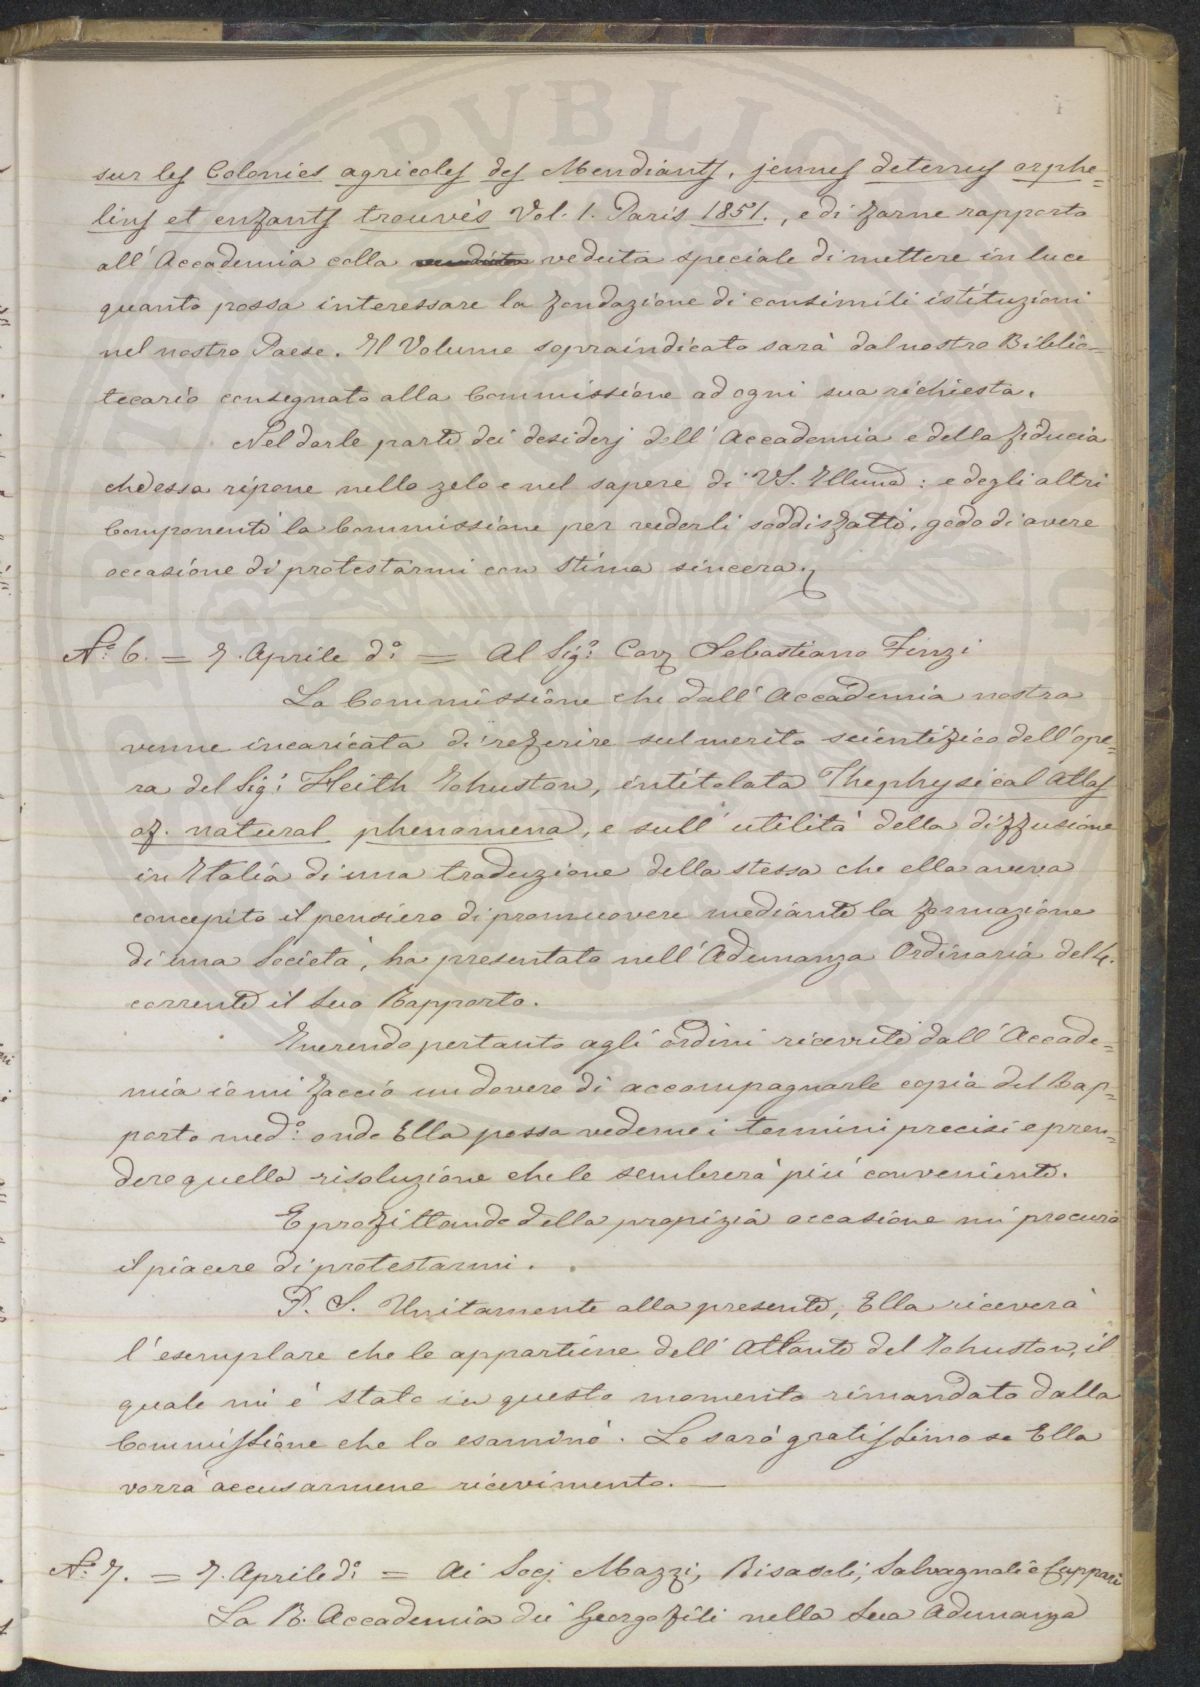 sur les Colonies agricoles des Mendiants, jennes detenus orphe=
lins et enfants trouvès Vol. 1. Paris 1851., e di farne rapporto
all'Accademia colla veduta speciale di mettere in luce
quanto possa interessare la fondazione di consimili istituzioni
nel nostro Paese. Il Volume sopraindicato sarà dal nostro Biblio=
tecario consegnato alla Commissione ad ogni sua richiesta.
Nel darle parte dei desiderj dell'Accademia e della fiducia
ch'essa ripone nello zelo e nel sapere di VS. Illma: e degli altri
Componenti la Commissione per vederli soddisfatti, godo di avere
occasione di protestarmi con stima sincera.
N.° 6. = 7. Aprile d.° = Al Sig.° Cav Sebastiano Finzi
La Commissione che dall'Accademia nostra
venne incaricata di referire sul merito scientifico dell'ope=
ra del Sig: Keith Iohnston, intitolata The physical Atlas
of natural phenomena, e sull'utilità della diffusione
in Italia di una traduzione della stessa che ella aveva
concepito il pensiero di promuovere mediante la formazione
di una Società, ha presentato nell'Adunanza Ordinaria del 4.
corrente il suo Rapporto.
Inerendo pertanto agli ordini ricevuti dall'Accade=
mia io mi faccio un dovere di accompagnarle copia del Rap=
porto med.° onde Ella possa vederne i termini precisi e pren=
dere quella risoluzione che le sembrerà più conveniente.
E profittando della propizia occasione mi procuro
il piacere di protestarmi.
P. S. Unitamente alla presente, Ella riceverà
l'esemplare che le appartiene dell'Atlante del Iohnston, il
quale mi è stato in questo momento rimandato dalla
Commissione che lo esaminò. Le sarò gratissimo se Ella
vorrà accusarmene ricevimento.
N.° 7. = 7. Aprile d.° = Ai Socj Mazzi, Ricasoli, Salvagnoli e
La R. Accademia dei Georgofili nella Sua Adunanza
PVBLIC